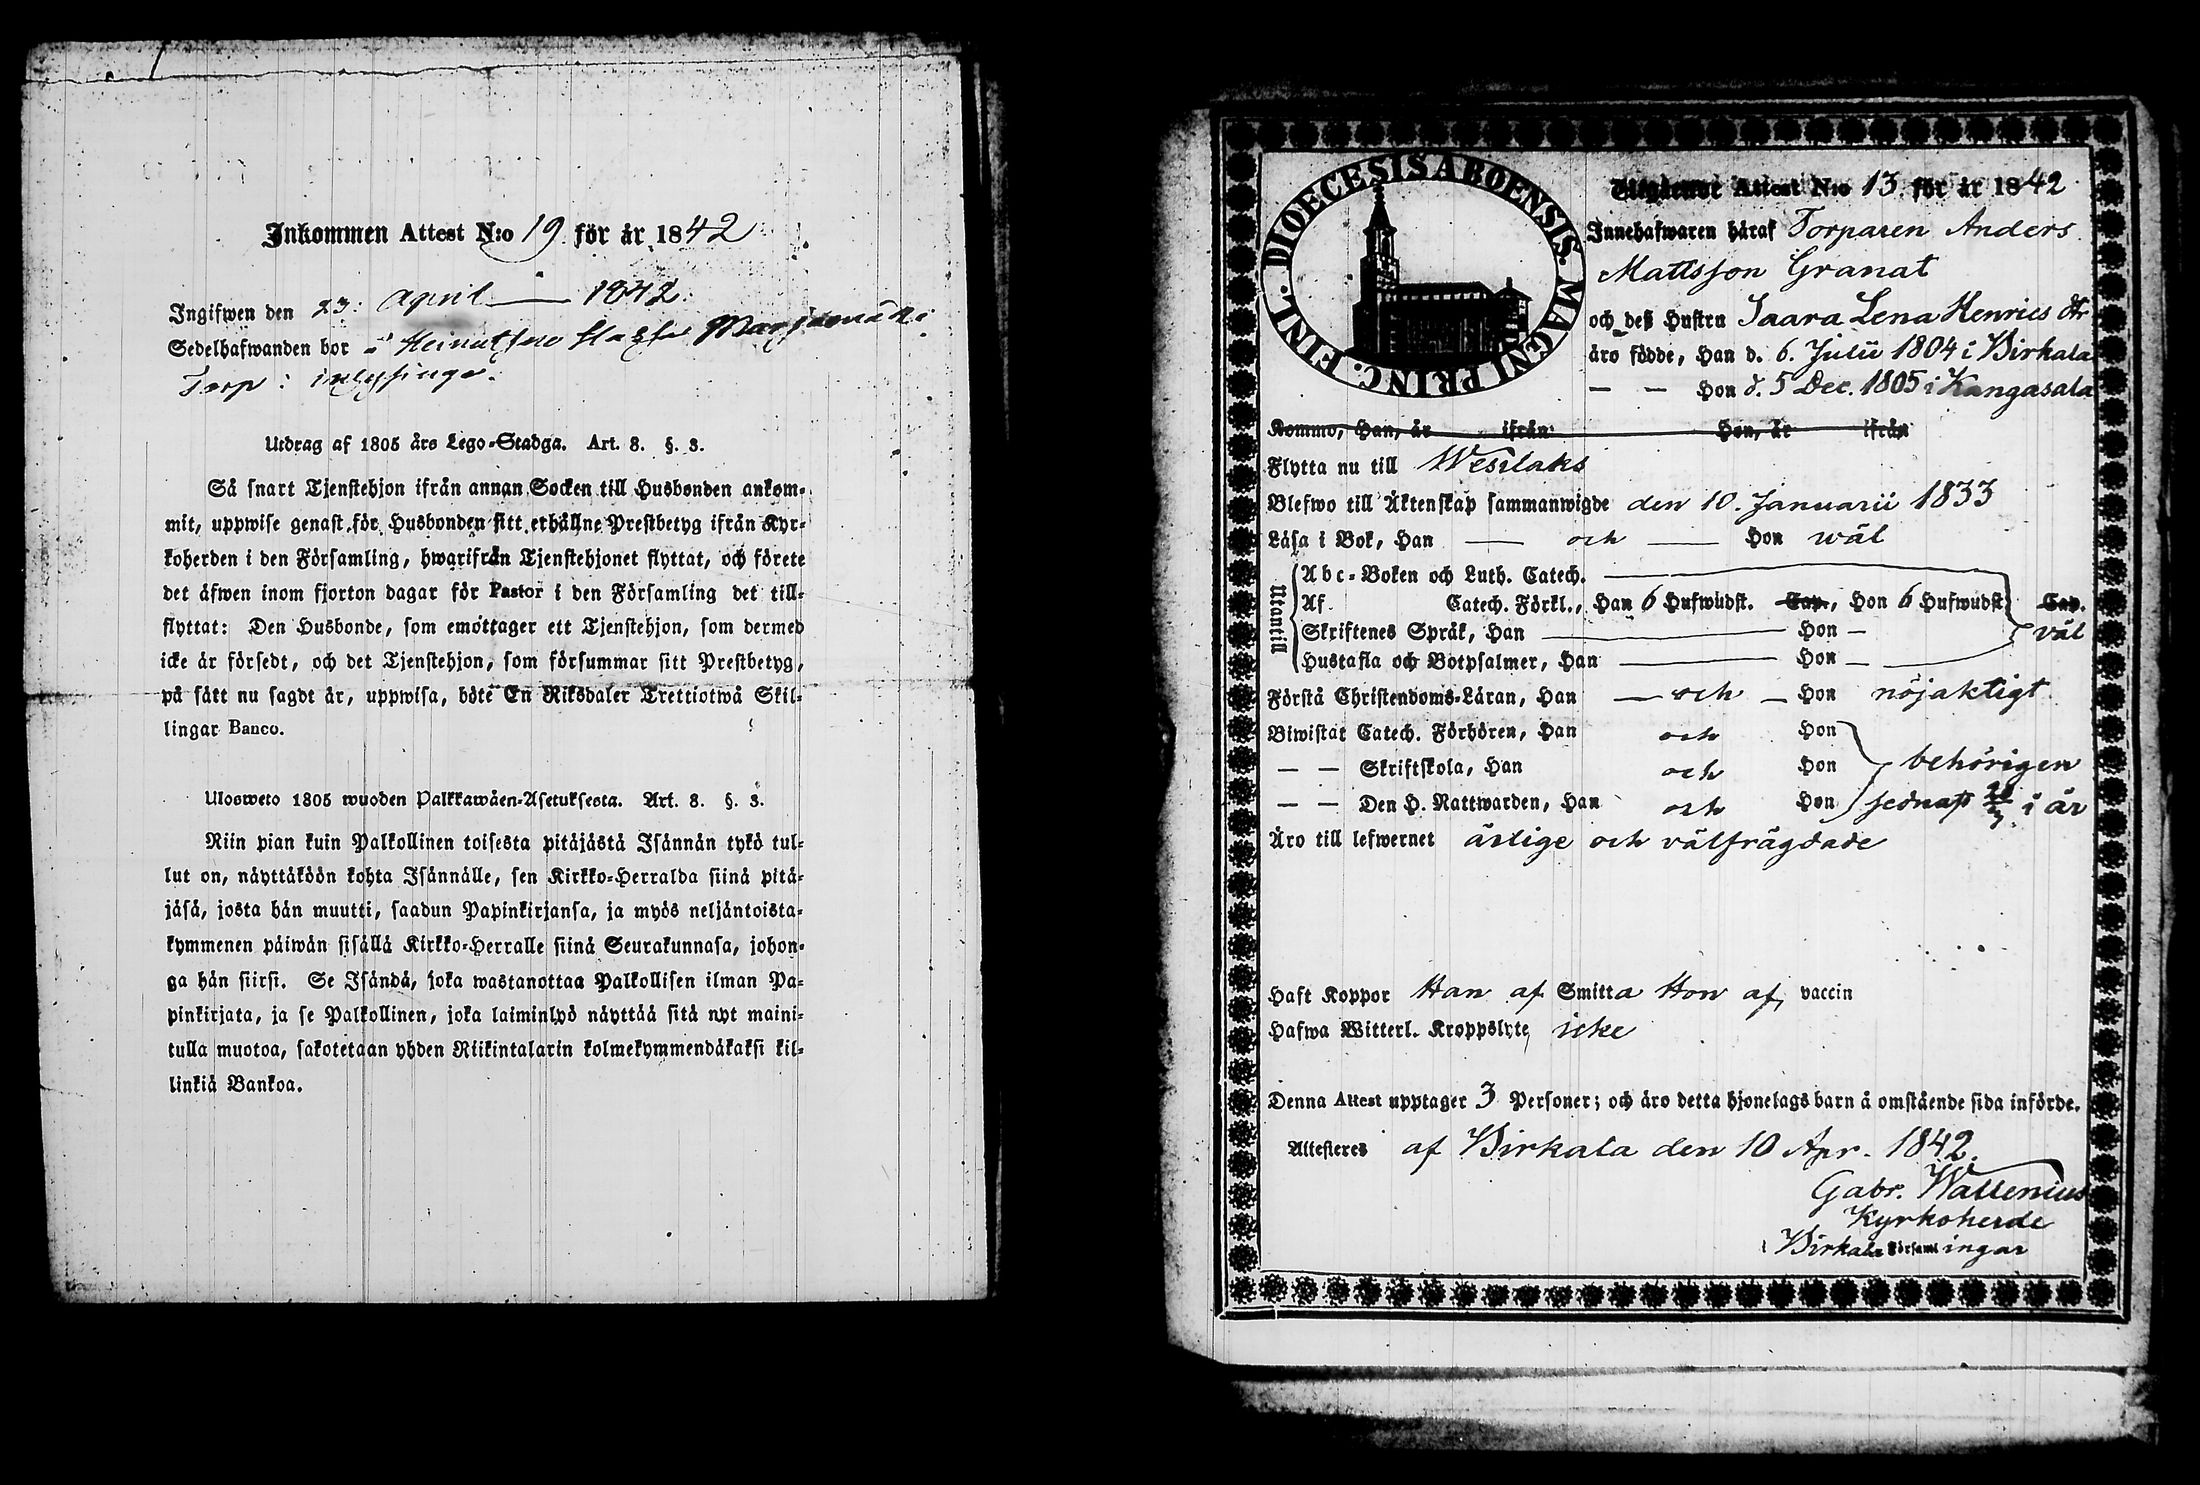 Inkommen Attest N:o 19 för år 1842
Ingifwen den 23: April 1842.
Sedelhafwanden bor
Torp i
Utdrag af 1805 års Lego-Stadga. Art. 8. §. 3.
Så snart Tjenstehjon ifrån annan Socken till Husbonden ankom-
mit, uppwise genast för Husbonden sitt erhållne Prestbetyg ifrån Kyr-
koherden i den Församling, hwarifrån Tjenstehjonet flyttat, och förete
det äfwen inom fjorton dagar för Pastor i den Församling det till-
flyttat: Den Husbonde, som emottager ett Tjenstehjon, som dermed
icke är försedt, och det Tjenstehjon, som försummar sitt Prestbetyg,
på sätt nu sagdt är, uppwisa, böte En Riksdaler Trettiotwå Skil-
lingar Banco.
Ulosweto 1805 wuoden Palkkawäen-Asetuksesta. Art. 8. §. 3.
Niin pian kuin Palkollinen toisesta pitäjästä Isännän tykö tul-
lut on, näyttäköön kohta Isännälle, sen Kirkko-Herralda siinä pitä-
jäsä, josta hän muutti, saadun Papinkirjansa, ja myös neljäntoista-
kymmenen päiwän sisällä Kirkko-Herralle siinä Seurakunnasa, johon-
ga hän siirsi. Se Isändä, joka wastanottaa Palkollisen ilman Pa-
pinkirjata, ja se Palkollinen, joka laiminlyö näyttää sitä nyt maini-
tulla muotoa, sakotetaan yhden Riikintalarin kolmekymmendäkaksi kil-
linkiä Bankoa.
DIOECESIS ABOENSIS. MAGNI PRINC. FINL.
Utgående Attest N:o 13 för år 1842
Innehafwaren häraf Torparen Anders
Mattsson Granat
och deß Hustru Saara Lena Henrics dtr
äro födde, Han d. 6. Julii 1804 i Birkala
— — Hon d. 5 Dec. 1805 i Kangasala
Kommo, Han, år ifrån Hon, år ifrån
Flytta nu till Wesilaks
Blefwo till Äktenskap sammanwigde den 10. Januarii 1833
Läsa i Bok, Han — och — Hon wäl
Utantill
Abc-Boken och Luth. Catech.
Af Catech. Förkl., Han 6 Hufwudst. Cap., Hon 6 Hufwudst. Cap.
Skriftenes Språk, Han — Hon — väl
Hustafla och Botpsalmer, Han — Hon —
Förstå Christendoms-Läran, Han — och — Hon nöjaktigt
Biwistat Catech. Förhören, Han och Hon
— — Skriftskola, Han och Hon behörigen
— — Den H. Nattwarden, Han och Hon sednast i år
Äro till lefwernet ärlige och välfrägdade
Haft Koppor Han af Smitta Hon af vaccin
Hafwa Witterl. Kroppslyte icke
Denna Attest upptager 3 Personer; och äro detta hjonelags barn å omstående sida införde.
Attesteres af Birkala den 10 Apr. 1842.
Gabr. Wallenius
Kyrkoherde
i Birkala Församlingar